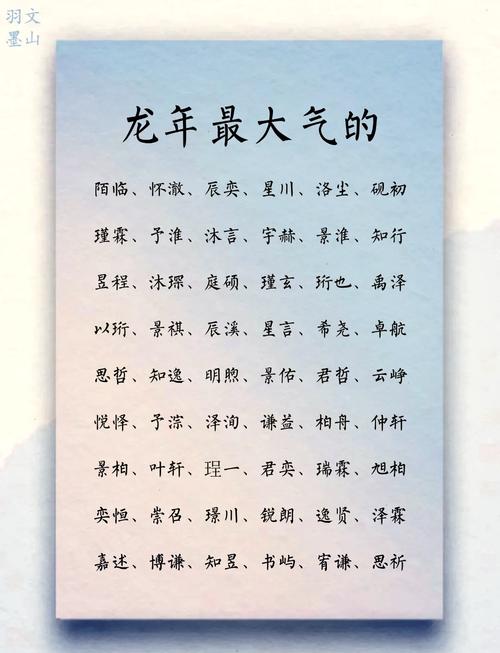 羽文
墨山
龙年最大气的
陌临、怀澈、辰奕、星川、洛尘、砚初
瑾霖、予淮、沐言、宇赫、景淮、知行
昱程、沐琛、庭硕、瑾玄、珩也、禹泽
以珩、景祺、辰溪、星言、希尧、卓航
思哲、知逸、明煦、景佑、君哲、云峥
悦怿、予淙、泽洵、谦益、柏舟、仲轩
景柏、叶轩、珵一、君奕、瑞霖、旭柏
奕恒、崇召、璟川、锐朗、逸贤、泽霖
嘉述、博谦、知昱、书屿、宥谦、思祈